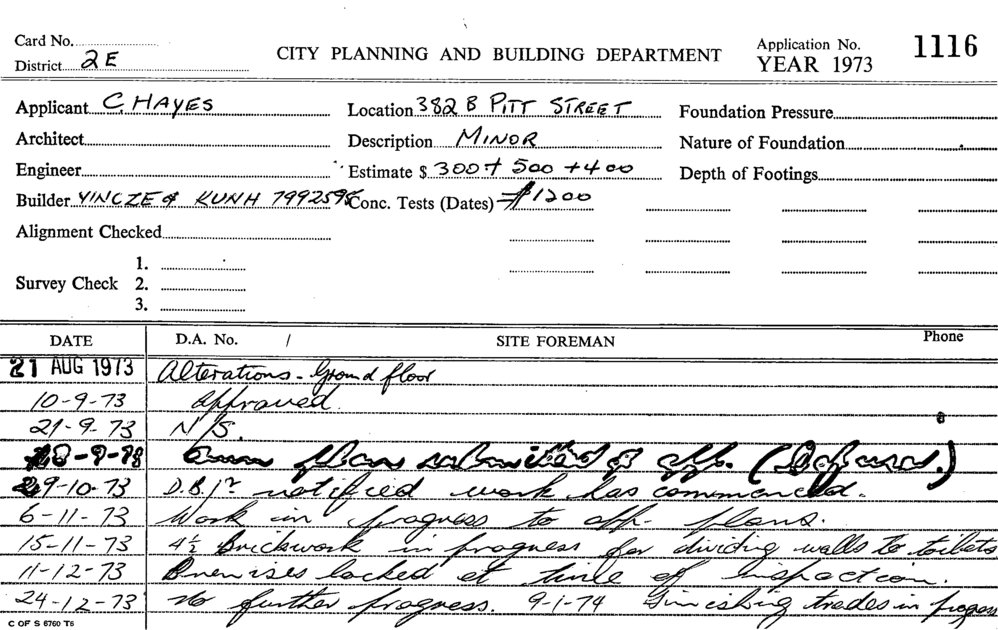 Card No.
District 2E
CITY PLANNING AND BUILDING DEPARTMENT
Application No. 1116
YEAR 1973
Applicant C. HAYES
Location 382 B PITT STREET
Foundation Pressure
Architect
Description MINOR
Nature of Foundation
Engineer
Estimate $ 300 + 500 + 400
Depth of Footings
Builder VINCZE & KUNH 7992595
Conc. Tests (Dates) $1200
Alignment Checked
Survey Check 1.
2.
3.
DATE D.A. No. / SITE FOREMAN Phone
21 AUG 1973 Alterations - Ground floor
10-9-73 Approved.
21-9-73 N/S.
8-9-73 plans submitted app.
29-10-73 D.B. notified work has commenced.
6-11-73 Work in progress to app. plans.
15-11-73 4½ Brickwork in progress for dividing walls to toilets
11-12-73 Premises locked at time of inspection.
24-12-73 No further progress. 9-1-74 Finishing trades in progress
C OF S 6760 T6